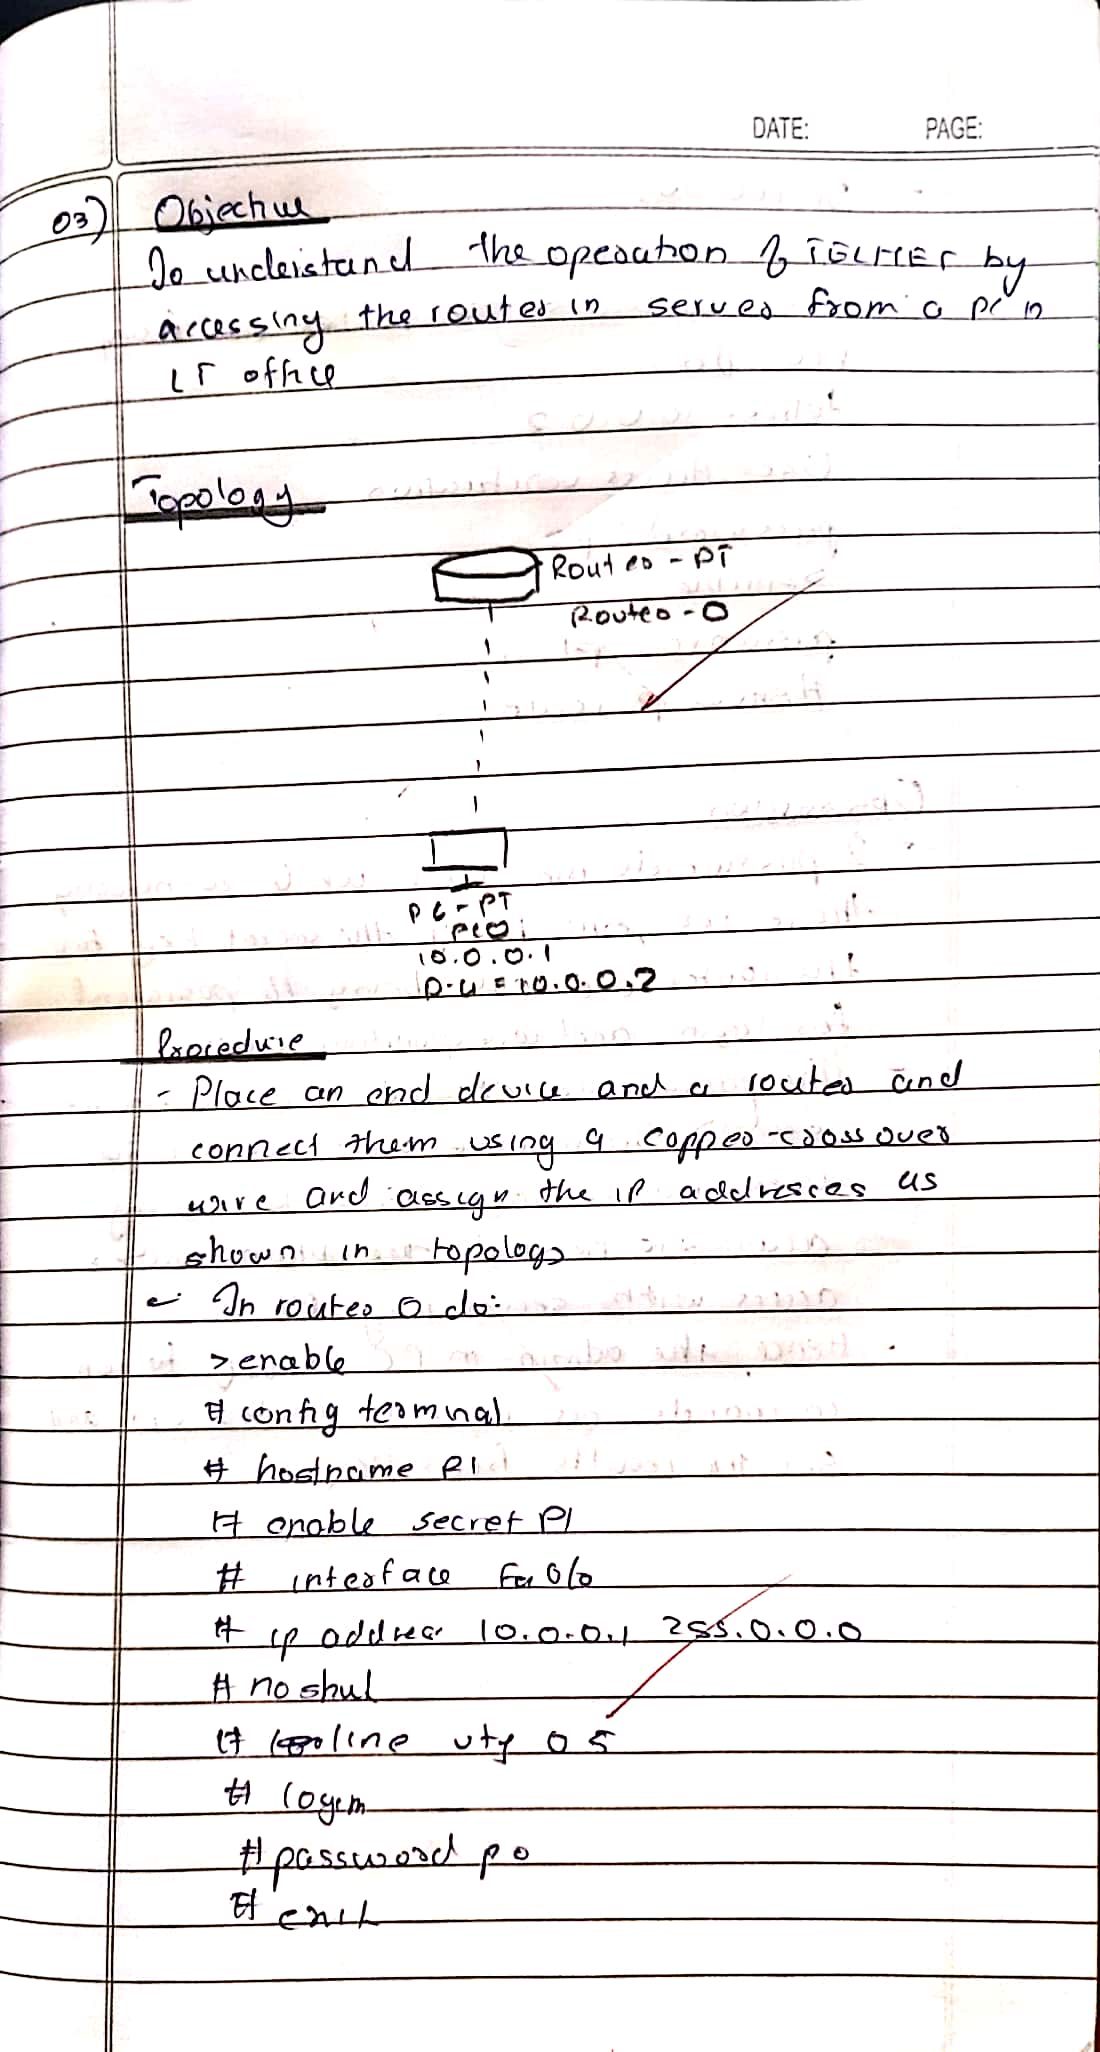 DATE: PAGE:
03) Objective
To understand the operation of TELNET by
accessing the router in server from a PC in
IT office
Topology
Router-PT
Router-0
PC-PT
PC0
10.0.0.1
D.G = 10.0.0.2
Procedure
- Place an end device and a router and
connect them using a copper-cross over
wire and assign the IP addresses as
shown in topology
In router 0 do:
> enable
# config terminal
# hostname R1
# enable secret P1
# interface Fa 0/0
# ip address 10.0.0.1 255.0.0.0
# no shut
# line vty 0 5
# login
# password p0
# exit